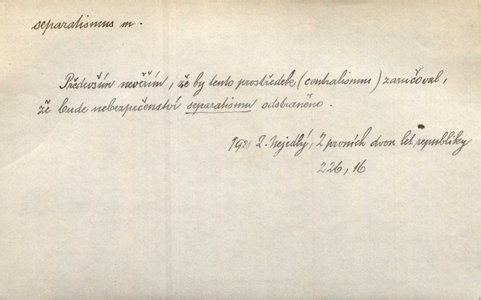 separatismus m.
Především nevěřím, že by tento prostředek (centralismus) zaručoval,
že bude nebezpečenství separatismu odstraněno.
1921 Z. Nejedlý, Z prvních dvou let republiky
226, 16